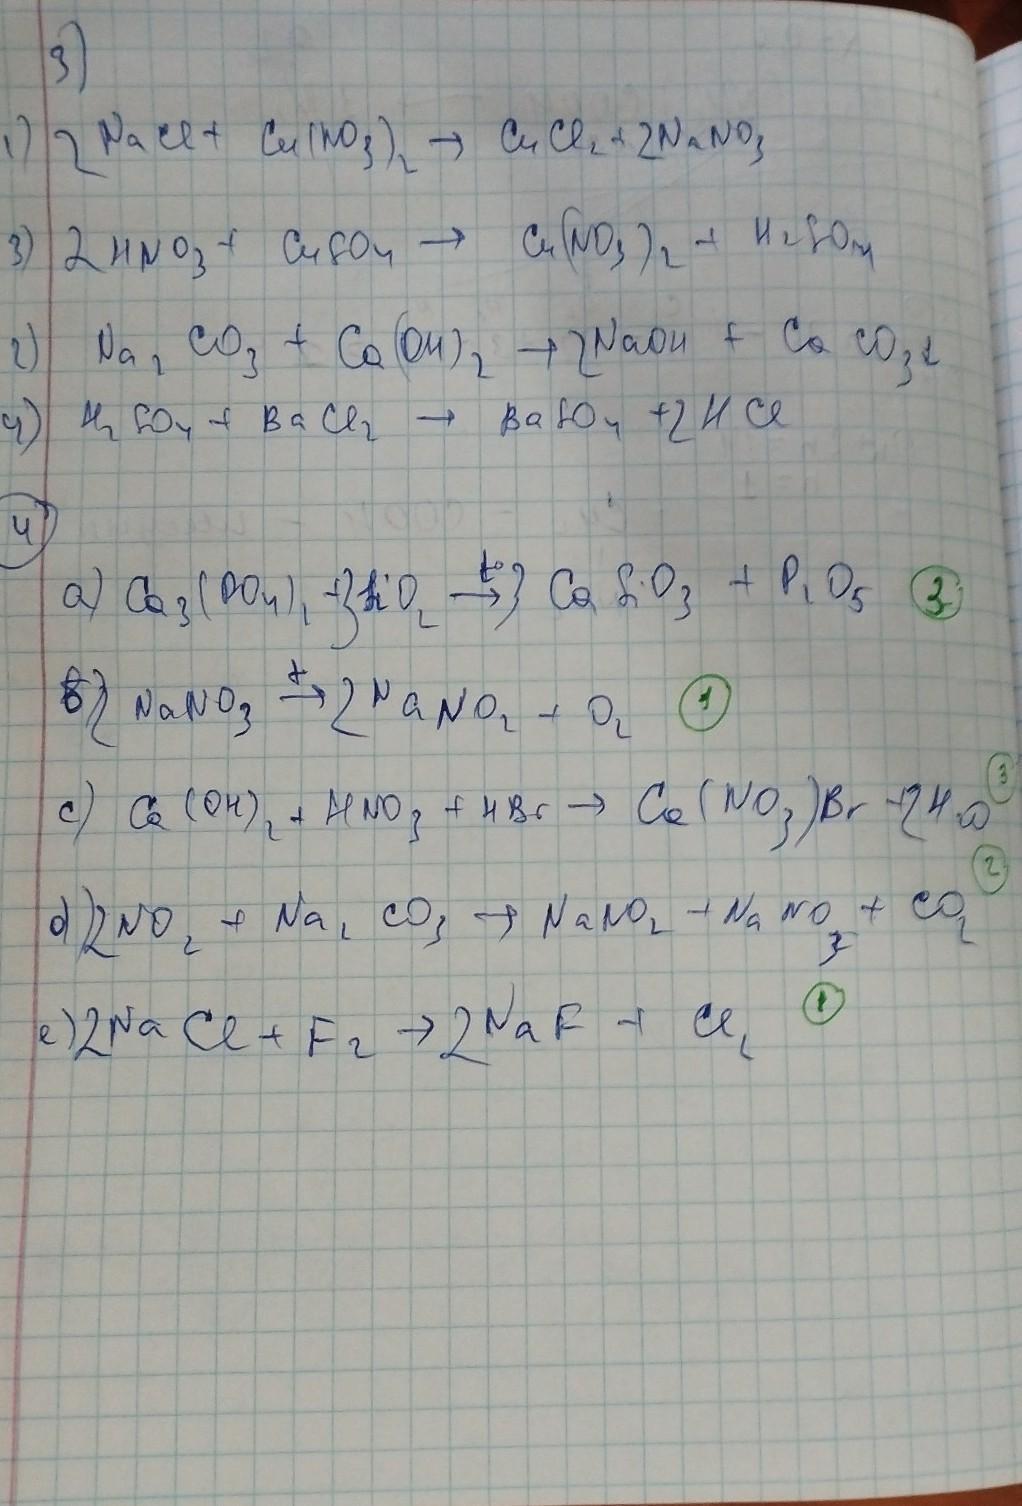 3)
1) 2NaCl + Cu(NO3)2 → CuCl2 + 2NaNO3
3) 2HNO3 + CuSO4 → Cu(NO3)2 + H2SO4
2) Na2CO3 + Ca(OH)2 → 2NaOH + CaCO3↓
4) H2SO4 + BaCl2 → BaSO4 + 2HCl
4
a) Ca3(PO4)2 + 3SiO2 t°→ 3CaSiO3 + P2O5 3
б) 2NaNO3 t→ 2NaNO2 + O2 1
c) Ca(OH)2 + HNO3 + HBr → Ca(NO3)Br + 2H2O 3
d) 2NO2 + Na2CO3 → NaNO2 + NaNO3 + CO2 2
e) 2NaCl + F2 → 2NaF + Cl2 1